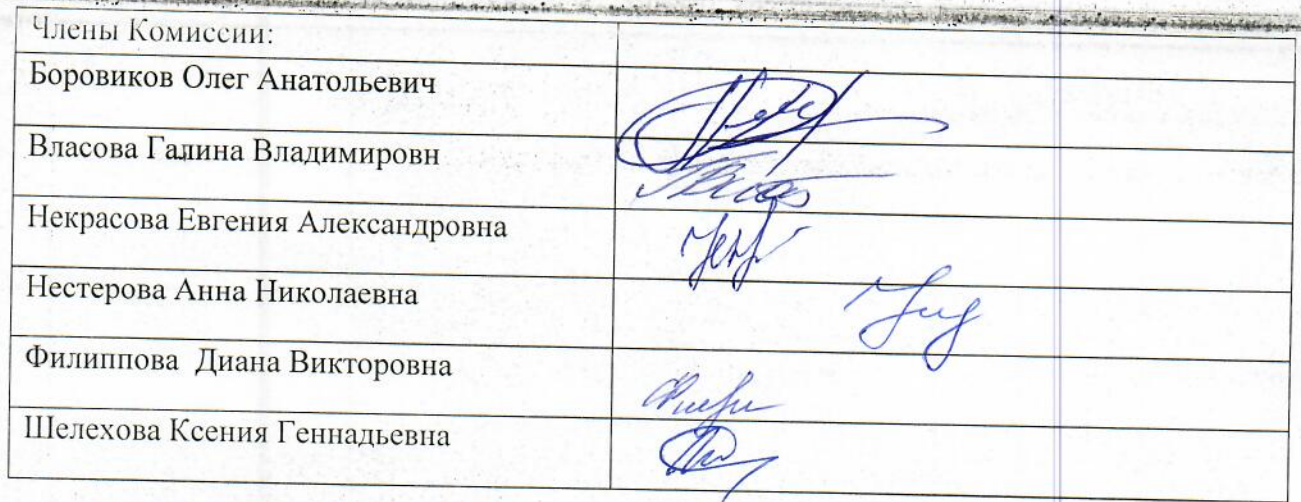 Члены Комиссии:
Боровиков Олег Анатольевич
Власова Галина Владимировн
Некрасова Евгения Александровна
Нестерова Анна Николаевна
Филиппова Диана Викторовна
Шелехова Ксения Геннадьевна